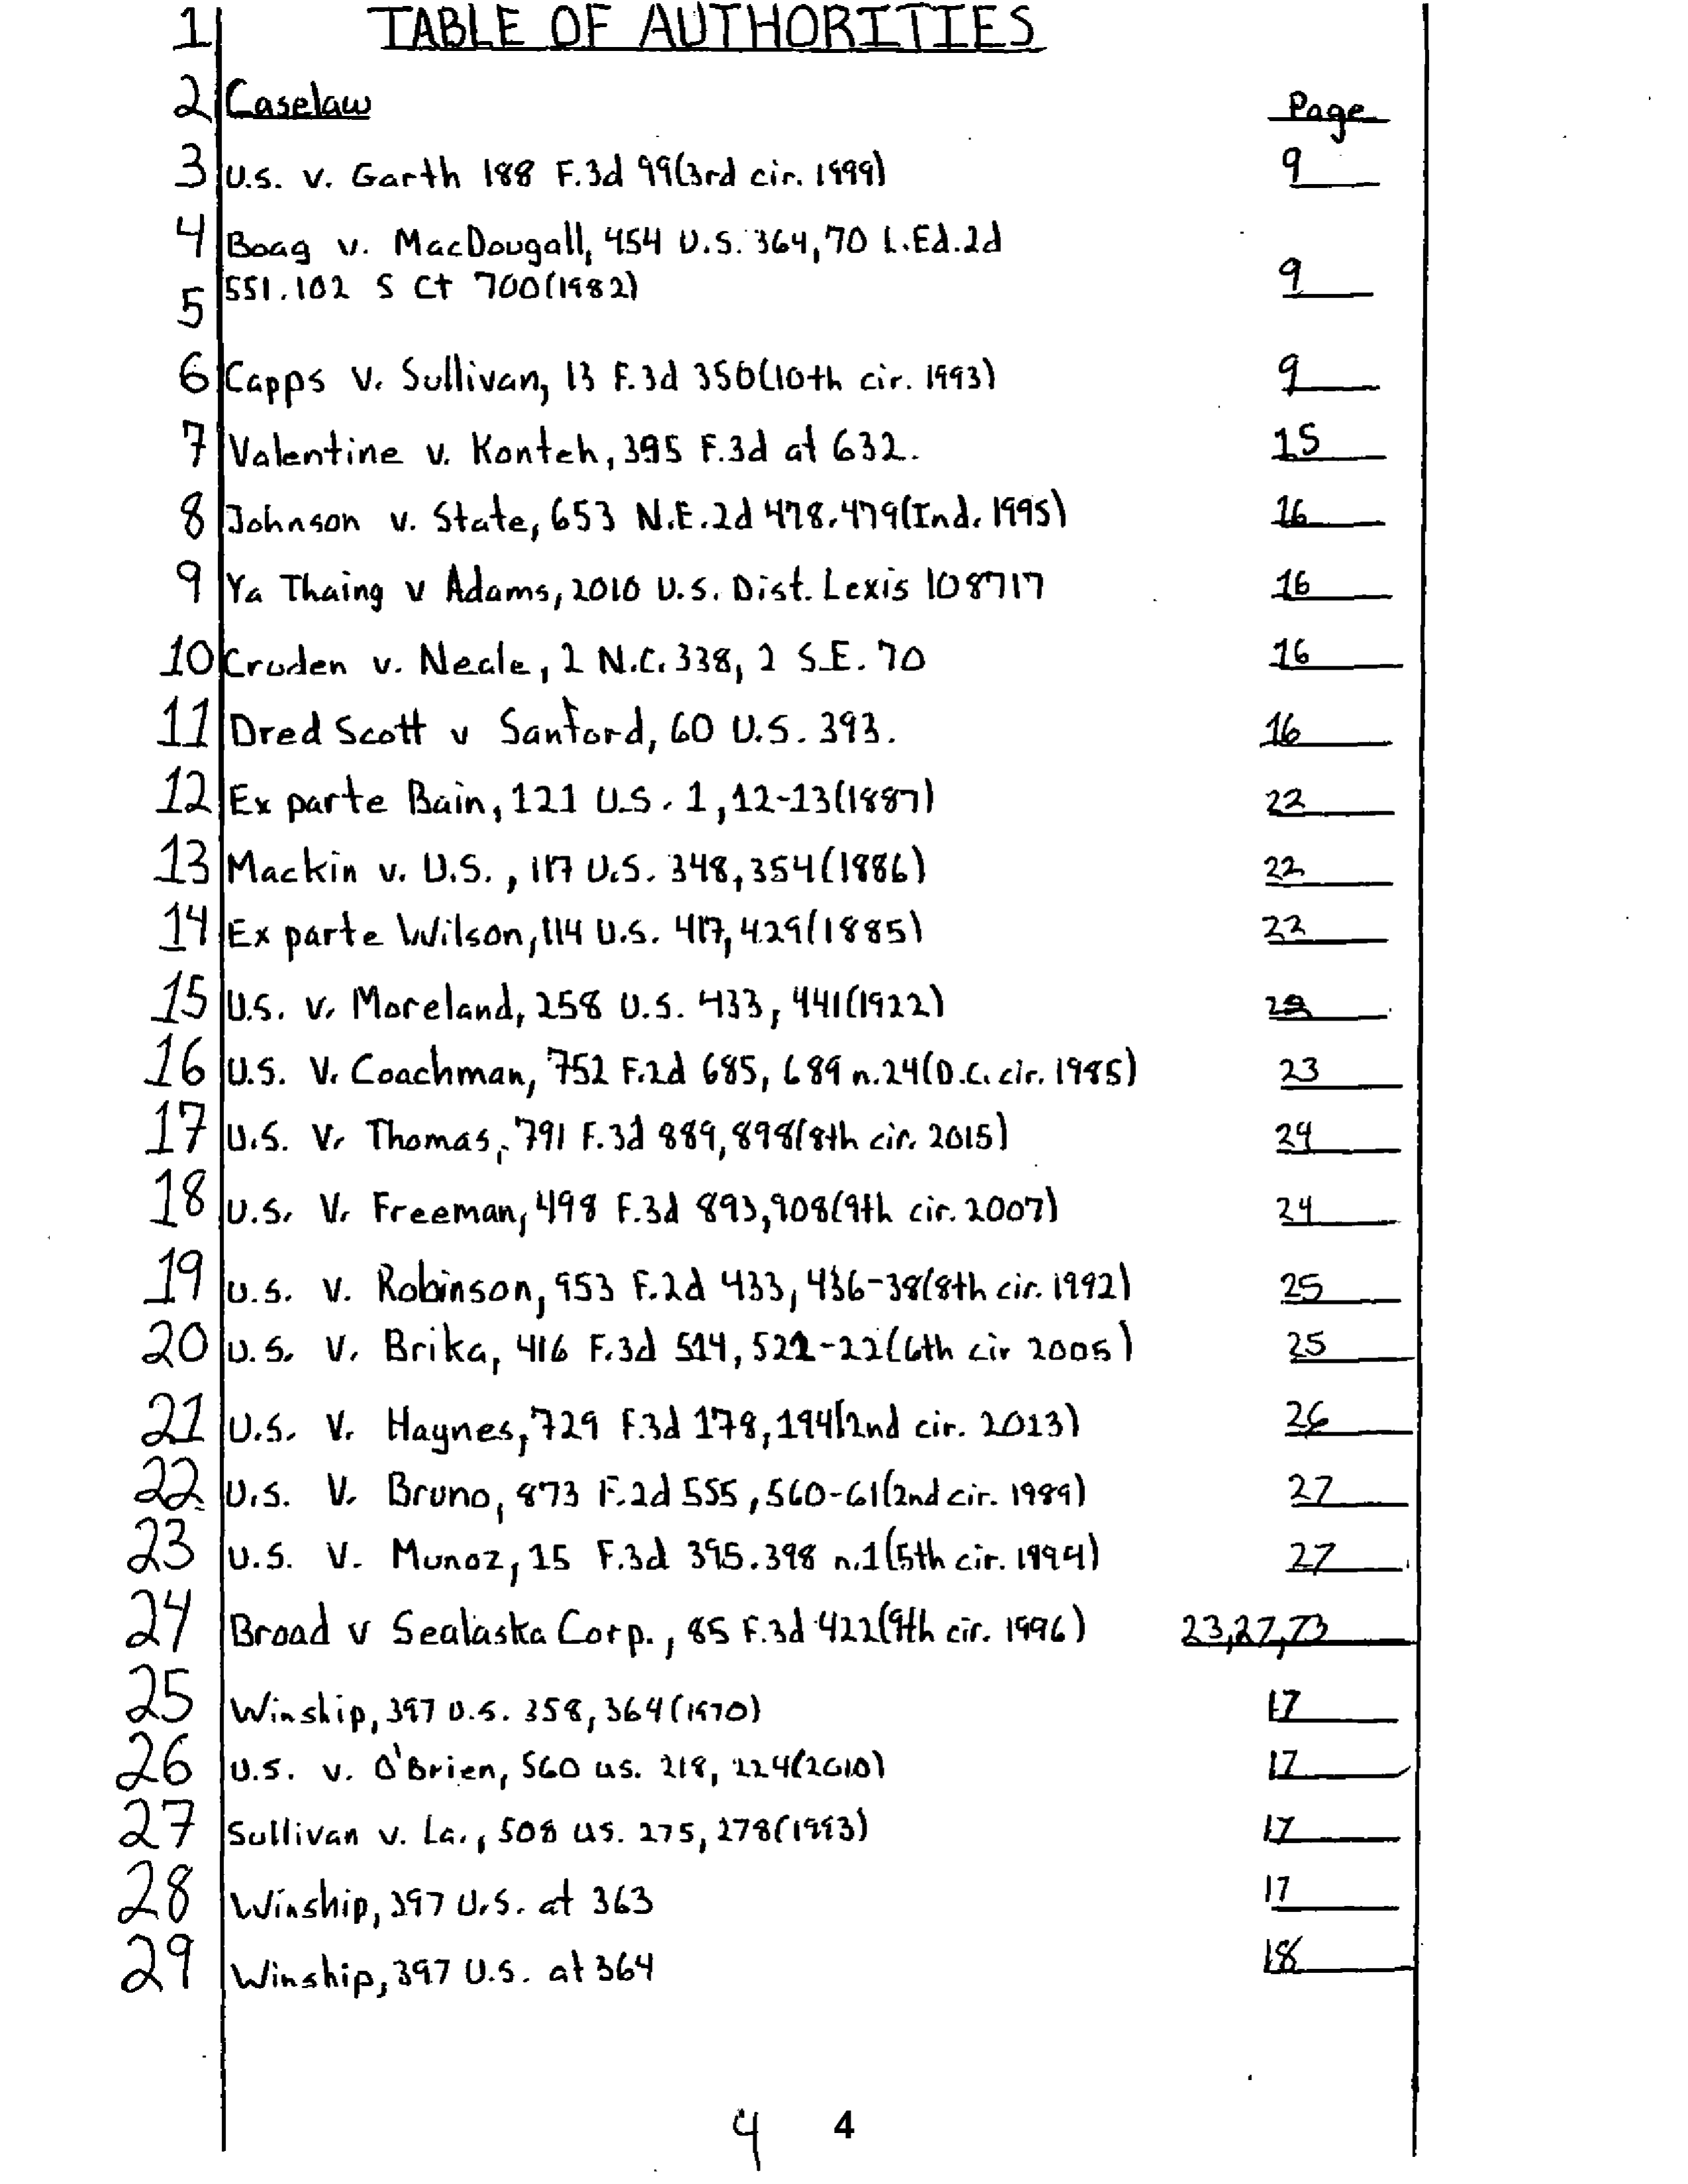 1 TABLE OF AUTHORITIES
2 Caselaw Page
3 U.S. v. Garth 188 F.3d 99(3rd cir. 1999) 9
4 Boag v. MacDougall, 454 U.S. 364,70 L.Ed.2d
5 551.102 S Ct 700(1982) 9
6 Capps v. Sullivan, 13 F.3d 350(10th cir. 1993) 9
7 Valentine v. Konteh, 395 F.3d at 632. 15
8 Johnson v. State, 653 N.E.2d 478.479(Ind. 1995) 16
9 Ya Thaing v Adams, 2010 U.S. Dist. Lexis 108717 16
10 Cruden v. Neale, 2 N.C. 338, 2 S.E. 70 16
11 Dred Scott v Sanford, 60 U.S. 393. 16
12 Ex parte Bain, 121 U.S. 1,12-13(1887) 22
13 Mackin v. U.S., 117 U.S. 348,354(1886) 22
14 Ex parte Wilson, 114 U.S. 417, 429(1885) 22
15 U.S. v. Moreland, 258 U.S. 433, 441(1922)
16 U.S. V. Coachman, 752 F.2d 685, 689 n.24(D.C. cir. 1985) 23
17 U.S. V. Thomas, 791 F.3d 889,898(8th cir. 2015) 24
18 U.S. V. Freeman, 498 F.3d 893,908(9th cir. 2007) 24
19 U.S. V. Robinson, 953 F.2d 433, 436-38(8th cir. 1992) 25
20 U.S. V. Brika, 416 F.3d 514, 522-22(6th cir 2005) 25
21 U.S. V. Haynes, 729 F.3d 178,194(2nd cir. 2013) 26
22 U.S. V. Bruno, 873 F.2d 555,560-61(2nd cir. 1989) 27
23 U.S. V. Munoz, 15 F.3d 395.398 n.1(5th cir. 1994) 27
24 Broad v Sealaska Corp., 85 F.3d 422(9th cir. 1996) 23,27,73
25 Winship, 397 U.S. 358, 364(1970) 17
26 U.S. v. O'Brien, 560 us. 218, 224(2010) 17
27 Sullivan v. La., 508 us. 275, 278(1993) 17
28 Winship, 397 U.S. at 363 17
29 Winship, 397 U.S. at 364 18
4 4